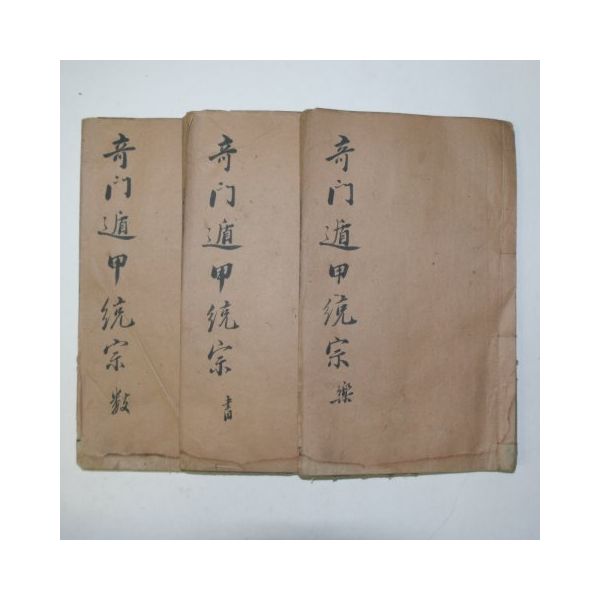 奇门遁甲统宗 樂
奇门遁甲统宗 書
奇门遁甲统宗 数